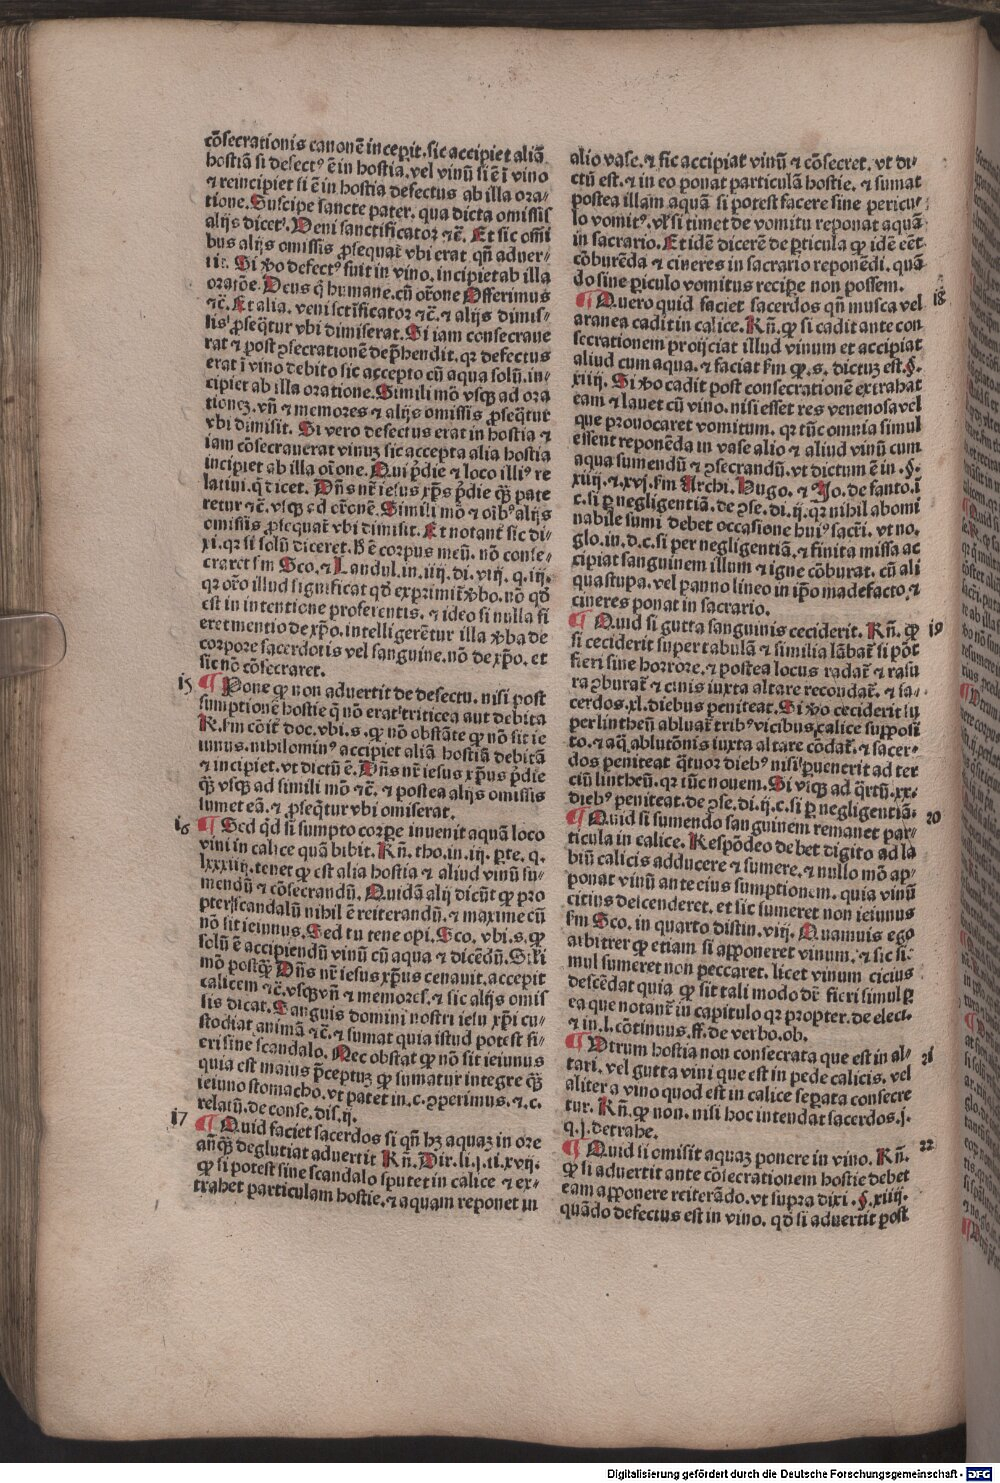 cõsecrationis canonẽ inceꝑit. sic accipiet aliã
hostiã si defectꝰ ẽ in hostia. vel vinũ si ẽ ĩ vino
⁊ reincipiet si ẽ in hostia defectus ab illa ora-
tione. Suscipe sancte pater. qua dicta omissis
alijs dicetꝰ. Ueni sanctificator ⁊c̃. Et sic oñi
bus alijs omissis ꝓsequat̃ vbi erat qñ aduer-
tit. Si ṽo defectꝰ fuit in vino. incipiet ab illa
oratõe. Deus q̃ humane. cũ or̃one Offerimus
⁊c̃. Et alia. veni sctificator ⁊c̃. ⁊ alijs dimis-
sis ꝓseq̃tur vbi dimiserat. Si iam consecraue
rat ⁊ post ↄsecrationẽ dep̃hendit. qꝛ defectus
erat ĩ vino debito sic accepto cũ aqua solũ. in-
cipiet ab illa oratione. Simili mõ vsqꝫ ad ora
tioneꝫ. vñ ⁊ memores ⁊ alijs omissis ꝓseq̃tur
vbi dimisit. Si vero defectus erat in hostia ⁊
iam cõsecrauerat vinuꝫ sic accepta alia hostia
incipiet ab illa or̃one. Qui p̃die ⁊ loco illiꝰ re
latiui. q̃ dicet. Dñs nr̃ iesus xp̃s p̃die qꝫ̃ pate
retur ⁊c̃. vsqꝫ ad or̃onẽ. Simili mõ ⁊ oĩbꝰ alijs
omissis ꝓsequat̃ vbi dimisit. Et notant̃ sic di-
xi. qꝛ si solũ diceret. H̃ ẽ corpus meũ. nõ conse-
craret s̃m Sco. ⁊ Landul. in. iiij. di. viij. q. iij.
qꝛ or̃o illud significat qd̃ exprimit̃ ṽbo. nõ qd̃
est in intentione proferentis. ⁊ ideo si nulla si
eret mentio de xp̃o. intelligerẽtur illa ṽba de
corpore sacerdotis vel sanguine. nõ de xp̃o. et
sic nõ cõsecraret.
15 ¶ Pone ꝙ non aduertit de defectu. nisi post
sumptionẽ hostie q̃ nõ erat triticea aut debita
R̃. s̃m cõit̃ doc. vbi. s. ꝙ nõ obstãte ꝙ nõ sit ie
iunus. nihilominꝰ accipiet aliã hostiã debitã
⁊ incipiet. vt dictũ ẽ. Dñs nr̃ iesus xp̃us p̃die
qꝫ̃ vsqꝫ ad simili mõ ⁊c̃. ⁊ postea alijs omissis
sumet eã. ⁊ ꝓseq̃tur vbi omiserat.
16 ¶ Sed qd̃ si sumpto corꝑe inuenit aquã loco
vini in calice quã bibit. Rñ. tho. in. iij. ꝑte. q.
lxxxiij. tenet ꝙ est alia hostia ⁊ aliud vinũ su-
mendũ ⁊ cõsecrandũ. Quidã alij dicũt ꝙ pro
pter scandalũ nihil ẽ reiterandũ. ⁊ maxime cũ
nõ sit ieiunus. Sed tu tene opi. Sco. vbi. s. ꝙ
solũ ẽ accipiendũ vinũ cũ aqua ⁊ dicẽdũ. Sĩli
mõ postqꝫ̃ Dñs nr̃ iesus xp̃us cenauit. accepit
calicem ⁊c̃. vsqꝫ vñ ⁊ memores. ⁊ sic alijs omis
sis dicat. Sanguis domini nostri iesu xp̃i cu-
stodiat animã ⁊c̃. ⁊ sumat quia istud potest fi-
eri sine scandalo. Nec obstat ꝙ nõ sit ieiunus
quia est maius p̃ceptuꝫ ꝙ sumatur integre qꝫ̃
ieiuno stomacho. vt patet in. c. ↄperimus. ⁊. c.
relatũ. de conse. dis. ij.
17 ¶ Quid faciet sacerdos si qñ hꝫ aquaꝫ in ore
anteqꝫ̃ deglutiat aduertit Rñ. Dir. li. j. ti. xvij.
ꝙ si potest sine scandalo sputet in calice ⁊ ex-
trahet particulam hostie. ⁊ aquam reponet in
alio vase. ⁊ sic accipiat vinũ ⁊ cõsecret. vt di-
ctũ est. ⁊ in eo ponat particulã hostie. ⁊ sumat
postea illam aquã si potest facere sine pericu-
lo vomitꝰ. vl̃ si timet de vomitu reponat aquã
in sacrario. Et idẽ dicerẽ de ꝑticula ꝙ idẽ eẽt
cõburẽda ⁊ cineres in sacrario reponẽdi. quã
do sine ꝑiculo vomitus reciꝑe non possem.
18 ¶ Quero quid faciet sacerdos qñ musca vel
aranea cadit in calice. Rñ. ꝙ si cadit ante con
secrationem proijciat illud vinum et accipiat
aliud cum aqua. ⁊ faciat s̃m ꝙ. s. dictuꝫ est. §.
xiiij. Si ṽo cadit post consecrationẽ extrahat
eam ⁊ lauet cũ vino. nisi esset res venenosa vel
que prouocaret vomitum. qꝛ tũc omnia simul
essent reponẽda in vase alio ⁊ aliud vinũ cum
aqua sumendũ ⁊ ↄsecrandũ. vt dictum ẽ in. §.
xiiij. ⁊. xvj. s̃m Archi. Hugo. ⁊ Jo. de fanto. ĩ
c. si ꝑ negligentiã. de ↄse. di. ij. qꝛ nihil abomi
nabile sumi debet occasione huiꝰ sacr̃i. vt no.
glo. in. d. c. si per negligentiã. ⁊ finita missa ac
cipiat sanguinem illum ⁊ igne cõburat. cũ ali
qua stupa. vel panno lineo in ip̃o madefacto. ⁊
cineres ponat in sacrario.
19 ¶ Quid si gutta sanguinis ceciderit. Rñ. ꝙ
si ceciderit super tabulã ⁊ similia lãbat̃ si põt
fieri sine horrore. ⁊ postea locus radat̃ ⁊ rasu
ra ↄburat̃ ⁊ cinis iuxta altare recondat̃. ⁊ sa-
cerdos. xl. diebus peniteat. Si ṽo ceciderit su
per lintheũ abluat̃ tribꝰ vicibus calice supposi
to. ⁊ aq̃ ablutõnis iuxta altare cõdat̃. ⁊ sacer-
dos peniteat q̃tuor diebꝰ nisi ꝑuenerit ad ter
ciũ lintheũ. qꝛ tũc nouem. Si vsqꝫ ad q̃rtũ. xx.
diebꝰ peniteat. de ↄse. di. ij. c. si ꝑ negligentiã.
20 ¶ Quid si sumendo sanguinem remanet par-
ticula in calice. Respõdeo debet digito ad la
biũ calicis adducere ⁊ sumere. ⁊ nullo mõ ap-
ponat vinũ ante eius sumptionem. quia vinũ
citius descenderet. et sic sumeret non ieiunus
s̃m Sco. in quarto distin. viij. Quamuis ego
arbitrer ꝙ etiam si apponeret vinum. ⁊ sic si-
mul sumeret non peccaret. licet vinum cicius
descẽdat quia ꝙ sit tali modo dr̃ fieri simul ꝑ
ea que notant̃ in capitulo qꝛ propter. de elect.
⁊ in. l. cõtinuus. ff. de verbo. ob.
21 ¶ Utrum hostia non consecrata que est in al-
tari. vel gutta vini que est in pede calicis. vel
aliter a vino quod est in calice seꝑata consecre
tur. Rñ. ꝙ non. nisi hoc intendat sacerdos. j.
q. j. detrahe.
22 ¶ Quid si omisit aquaꝫ ponere in vino. Rñ.
ꝙ si aduertit ante cõsecrationem hostie debet
eam apponere reiterãdo. vt supra dixi. §. xiiij.
quãdo defectus est in vino. qd̃ si aduertit post
Digitalisierung gefördert durch die Deutsche Forschungsgemeinschaft - DFG